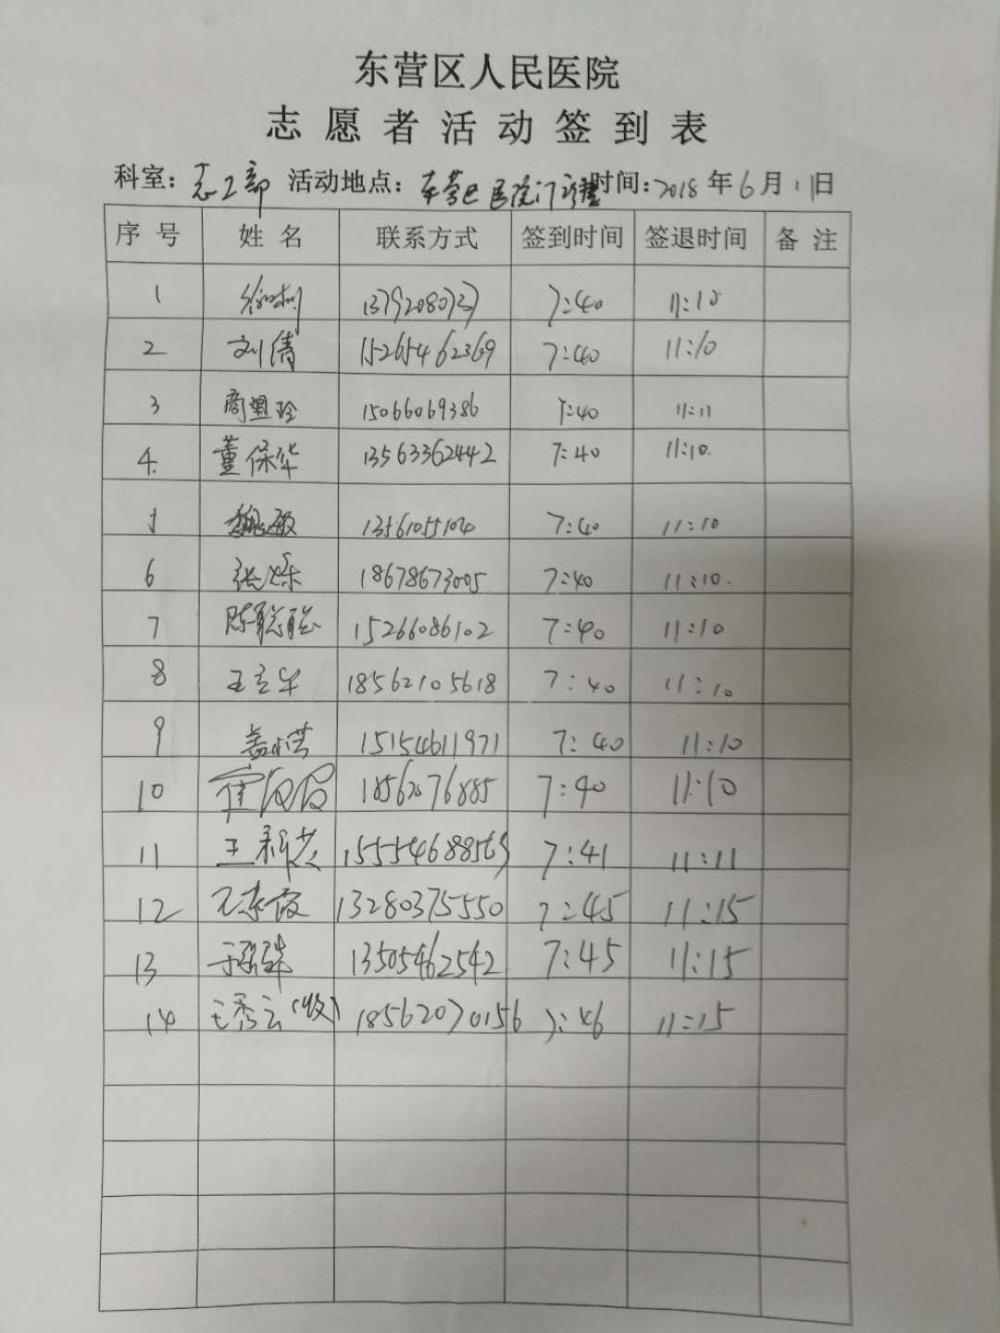 东营区人民医院
志愿者活动签到表
科室：志工部 活动地点：东营区医院门诊楼 时间：2018年6月11日
序号 姓名 联系方式 签到时间 签退时间 备注
1 7:40 11:10
2 刘倩 15265462369 7:40 11:10
3 15066069386 7:40 11:11
4. 董保华 13563362442 7:40 11:10.
5 魏敏 7:40 11:10
6 18678673005 7:40 11:10.
7 陈聪聪 15266086102 7:40 11:10
8 王立华 18562105618 7:40 11:10
9 15154611971 7:40 11:10
10 7:40 11:10
11 15554688569 7:41 11:11
12 13280375550 7:45 11:15
13 13505462542 7:45 11:15
14 王秀云 18562070156 7:46 11:15